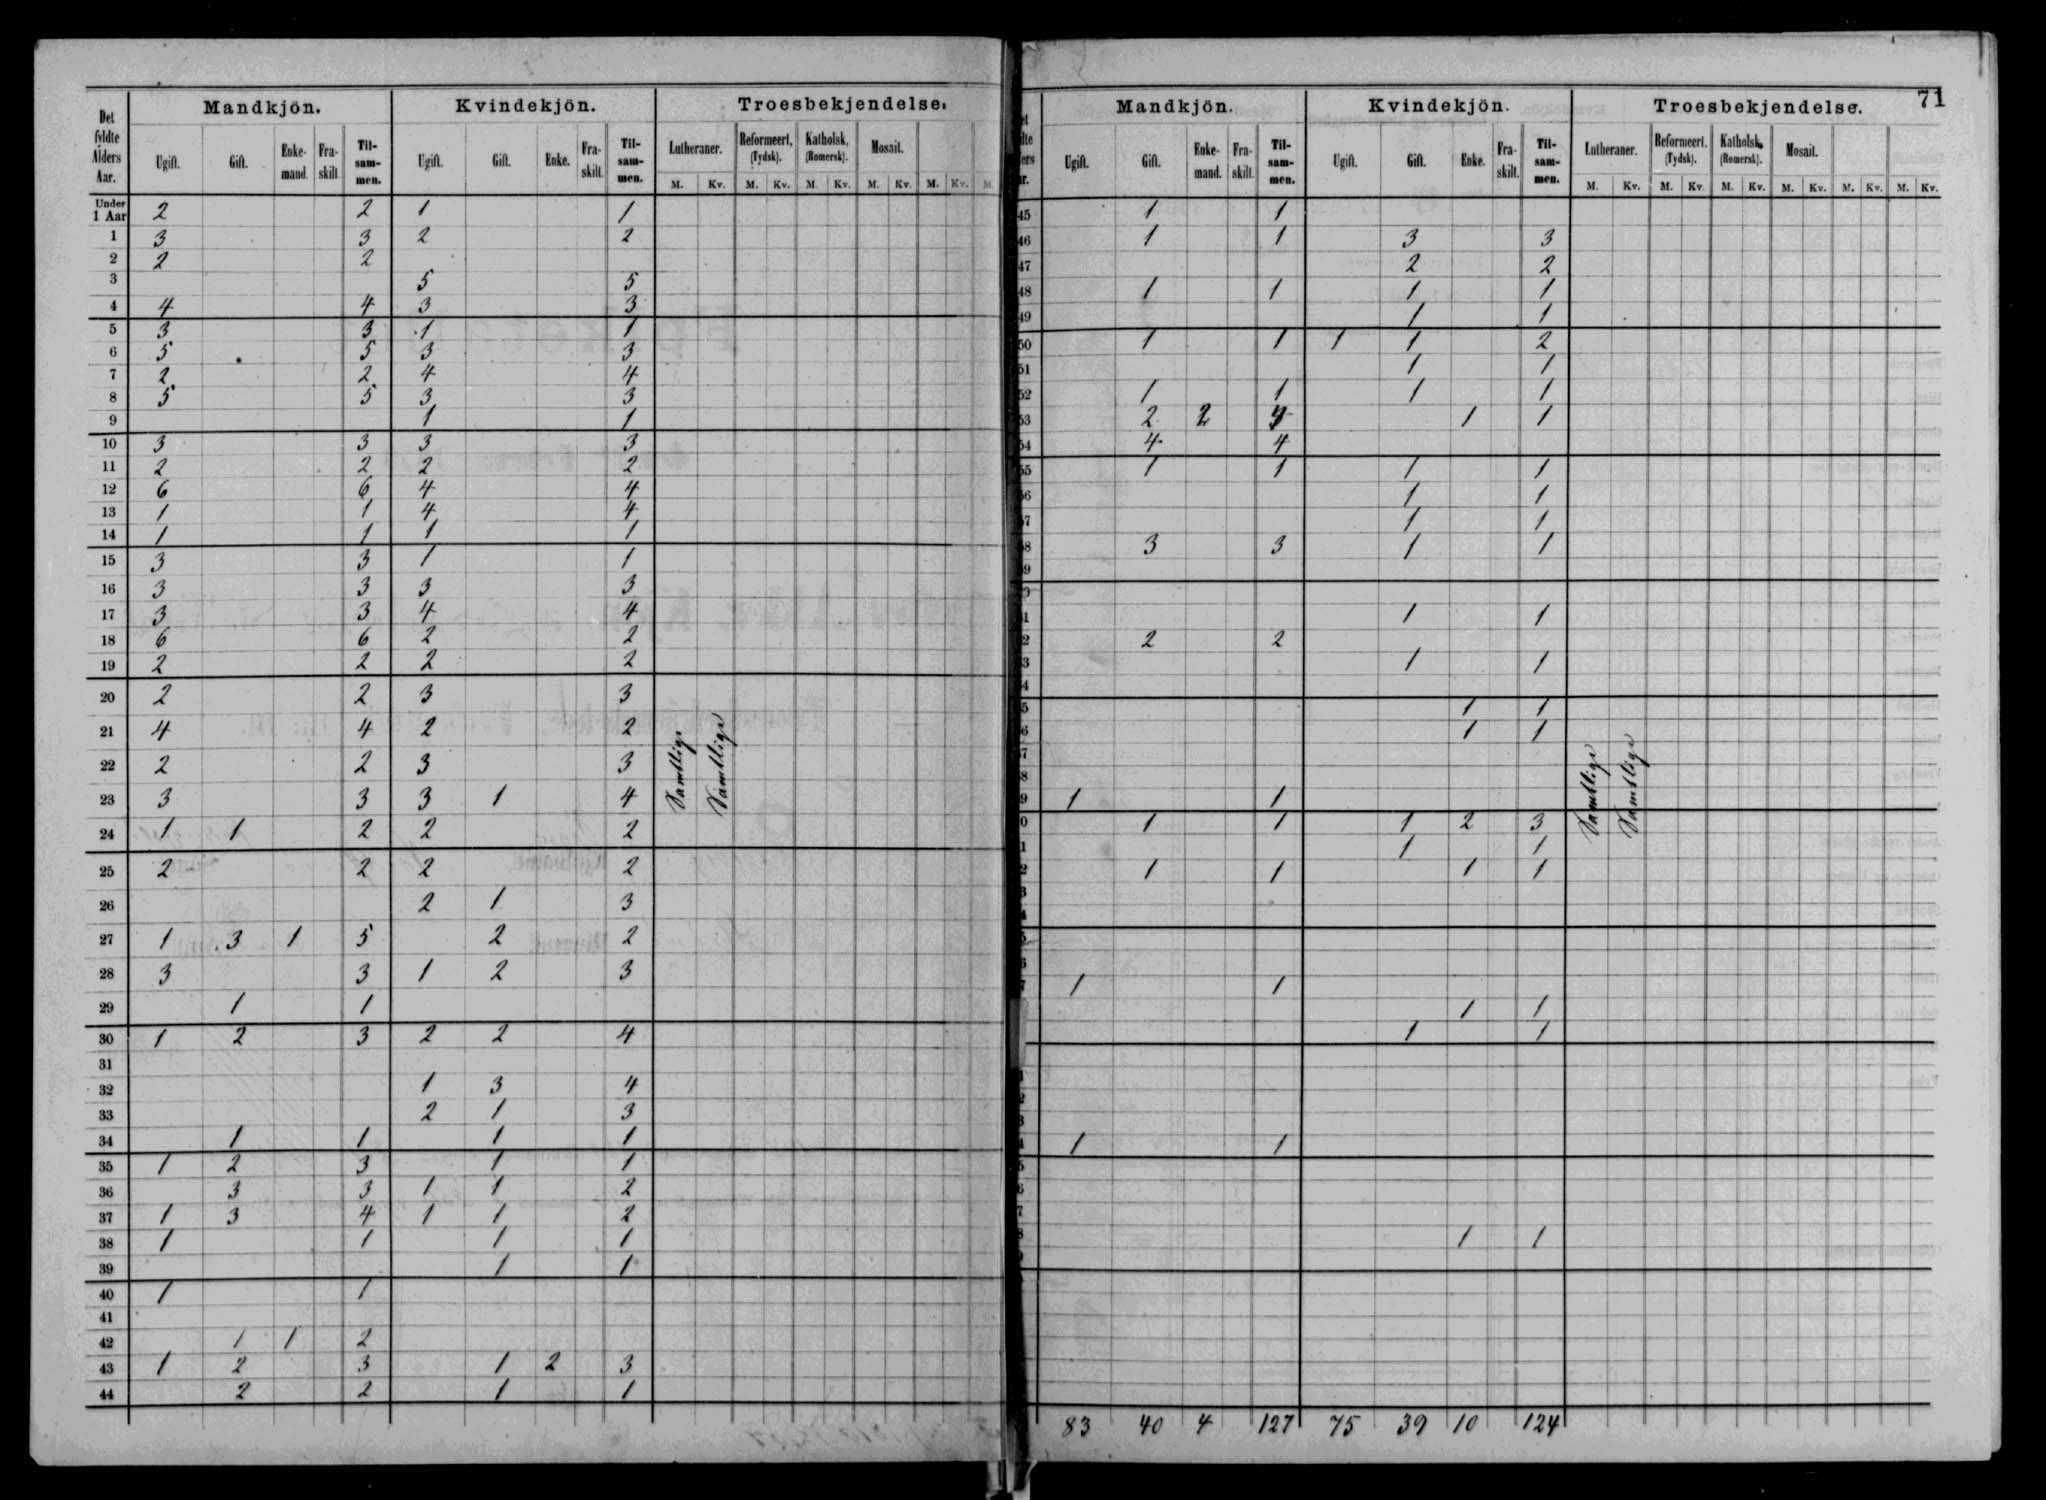 71
Mandkjön. Kvindekjön. Troesbekjendelse.
Det fyldte Alders Aar. Ugift. Gift. Enke-mand. Fra-skilt. Til-sam-men. Ugift. Gift. Enke. Fra-skilt. Til-sam-men. Lutheraner. Reformeert, (Tydsk). Katholsk, (Romersk). Mosait.
M. Kv. M. Kv. M. Kv. M. Kv. M. Kv. M.
Under 1 Aar 2 2 1 1
1 3 3 2 2
2 2 2
3 5 5
4 4 4 3 3
5 3 3 1 1
6 5 5 3 3
7 2 2 4 4
8 5 5 3 3
9 1 1
10 3 3 3 3
11 2 2 2 2
12 6 6 4 4
13 1 1 4 4
14 1 1 1 1
15 3 3 1 1
16 3 3 3 3
17 3 3 4 4
18 6 6 2 2
19 2 2 2 2
20 2 2 3 3
21 4 4 2 2
22 2 2 3 3
23 3 3 3 1 4
24 1 1 2 2 2
25 2 2 2 2
26 2 1 3
27 1 3 1 5 2 2
28 3 3 1 2 3
29 1 1
30 1 2 3 2 2 4
31
32 1 3 4
33 2 1 3
34 1 1 1 1
35 1 2 3 1 1
36 3 3 1 1 2
37 1 3 4 1 1 2
38 1 1 1 1
39 1 1
40 1 1
41
42 1 1 2
43 1 2 3 1 2 3
44 2 2 1 1
Samtlige
Samtlige
Mandkjön. Kvindekjön. Troesbekjendelse.
Ugift. Gift. Enke-mand. Fra-skilt. Til-sam-men. Ugift. Gift. Enke. Fra-skilt. Til-sam-men. Lutheraner. Reformeert, (Tydsk). Katholsk, (Romersk). Mosait.
M. Kv. M. Kv. M. Kv. M. Kv. M. Kv. M. Kv.
45 1 1
46 1 1 3 3
47 2 2
48 1 1 1 1
49 1 1
50 1 1 1 1 2
51 1 1
52 1 1 1 1
53 2 2 4 1 1
54 4 4
55 1 1 1 1
6 1 1
7 1 1
8 3 3 1 1
9
0
1 1 1
2 2 2
3 1 1
4
5 1 1
6 1 1
7
8
9 1 1
0 1 1 1 2 3
1 1 1
2 1 1 1 1
3
4
5
6
7 1 1
1 1
1 1
1
2
3
4 1 1
5
6
7
8 1 1
Samtlige
Samtlige
83 40 4 127 75 39 10 124